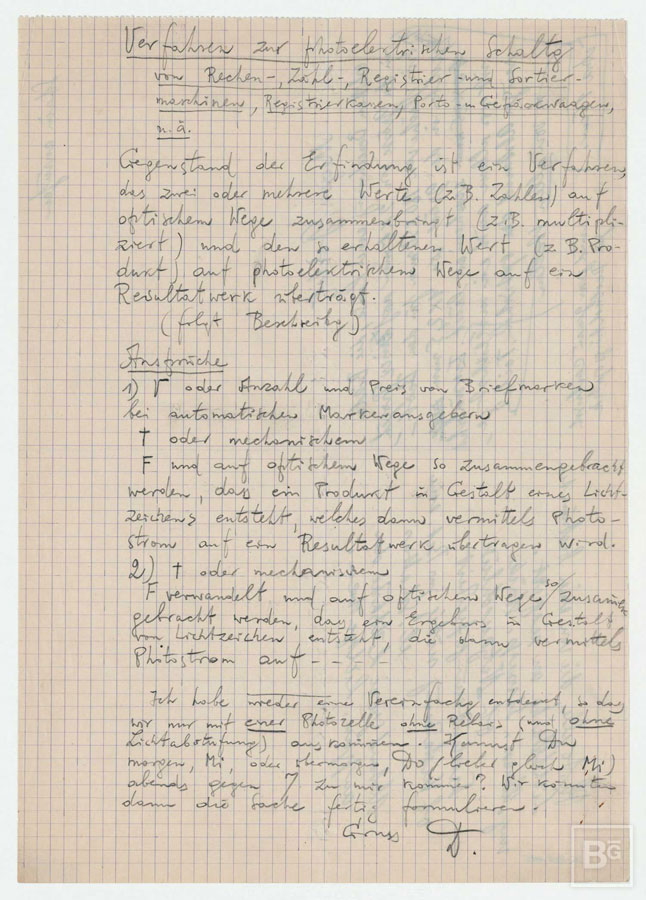 Verfahren zur photoelektrischen Schaltg
von Rechen-, Zähl-, Registrier- und Sortier-
maschinen, Registrierkassen, Porto- u Gefässwaagen,
u. ä.
Gegenstand der Erfindung ist ein Verfahren,
das zwei oder mehrere Werte (z.B. Zahlen) auf
optischem Wege zusammenbringt (z.B. multipli-
ziert) und den so erhaltenen Wert (z.B. Pro-
dukt) auf photoelektrischem Wege auf ein
Resultatwerk überträgt.
(folgt Beschreibg)
Ansprüche
1) V oder Anzahl und Preis von Briefmarken
bei automatischen Markenausgebern
† oder mechanischem
F und auf optischem Wege so zusammengebracht
werden, dass ein Produkt in Gestalt eines Licht-
zeichens entsteht, welches dann vermittels Photo-
strom auf ein Resultatwerk übertragen wird.
2) † oder mechanischem
F verwandelt und auf optischem Wege so zusammen
gebracht werden, dass ein Ergebnis in Gestalt
von Lichtzeichen entsteht, die dann vermittels
Photostrom auf - - - -
Ich habe wieder eine Vereinfachg entdeckt, so dass
wir nur mit einer Photozelle ohne Relais (und ohne
Lichtabstufung) auskommen. Kannst Du
morgen, Mi, oder übermorgen, Do (lieber gleich Mi)
abends gegen 7 zu mir kommen? Wir könnten
dann die Sache fertig formulieren.
Gruss D.
BG